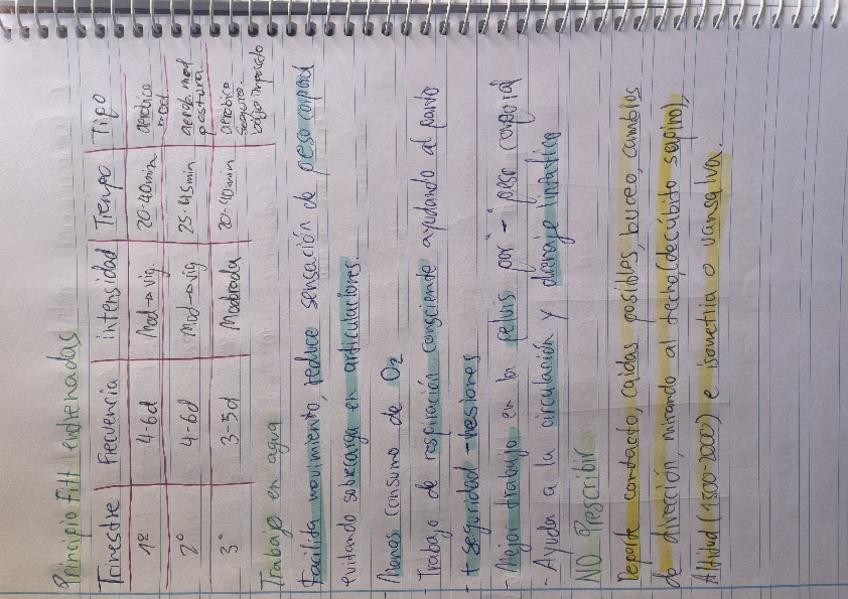 Principio Fitt entrenadas
Trimestre Frecuencia intensidad Tiempo Tipo
1º 4-6d Mod→vig. 20-40min aerobico mod
2º 4-6d Mod→vig 25-45min aerob. mod postura
3º 3-5d Moderada 20-40min aerobico seguro. bajo impacto
Trabajo en agua
Facilita movimiento, reduce sensación de peso corporal
evitando sobrecarga en articulaciones.
- Menos consumo de O2
- Trabajo de respiración consciente ayudando al parto
- + seguridad -lesiones
- Mejor trabajo en la pelvis por - peso corporal
- Ayuda a la circulación y drenaje linfático
NO Prescribir
Deporte contacto, caidas posibles, buceo, cambios
de dirección, mirando al techo(decúbito supino),
Altitud (1500-2000) e isometria o vansalva.